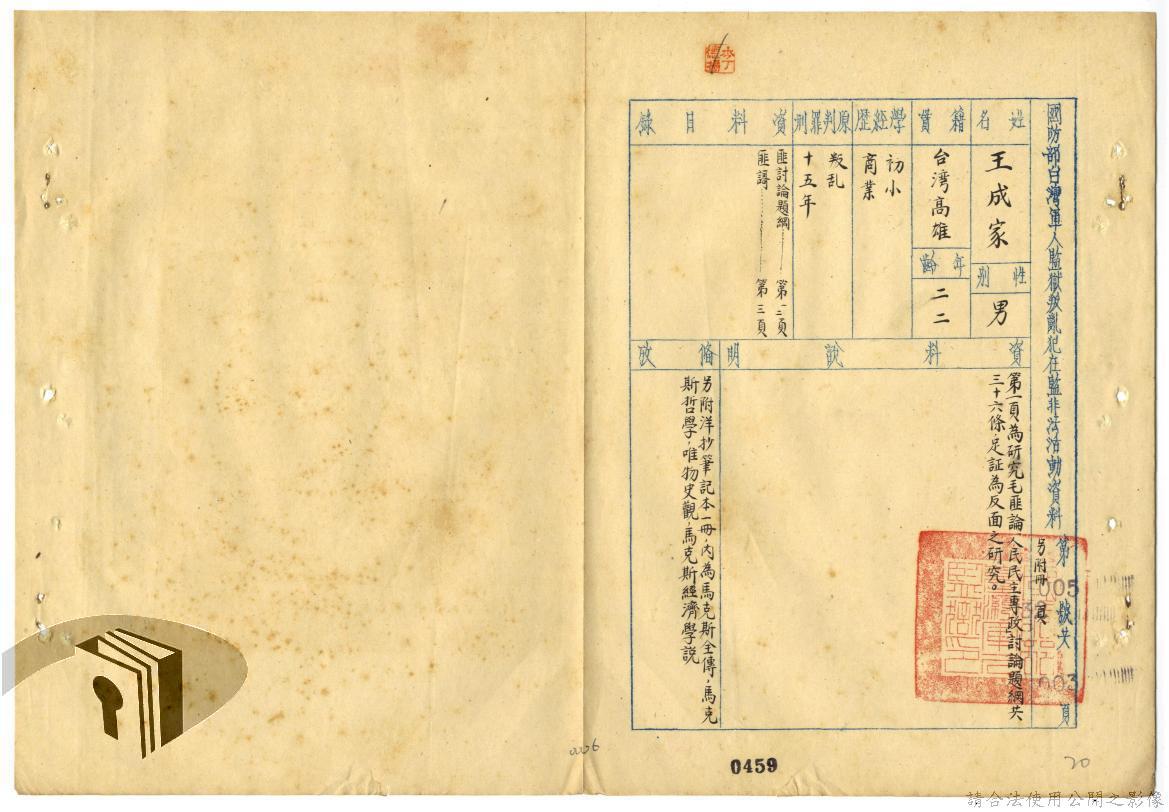 國防部台灣軍人監獄叛亂犯在監非法活動資料
第005號共003頁
另附冊 頁
姓名
王成家
性別
男
籍貫
台湾高雄
年齡
二二
學經歷
初小
商業
原判罪刑
叛乱
十五年
資料目錄
匪討論題綱……第一二頁
匪謌……第三頁
資料說明
第一頁為研究毛匪論人民民主專政討論題綱共
三十六條,足証為反面之研究。
備攷
另附洋抄筆記本一冊,內為馬克斯全傳,馬克
斯哲學,唯物史觀,馬克斯經濟學説
0459
20
請合法使用公開之影像